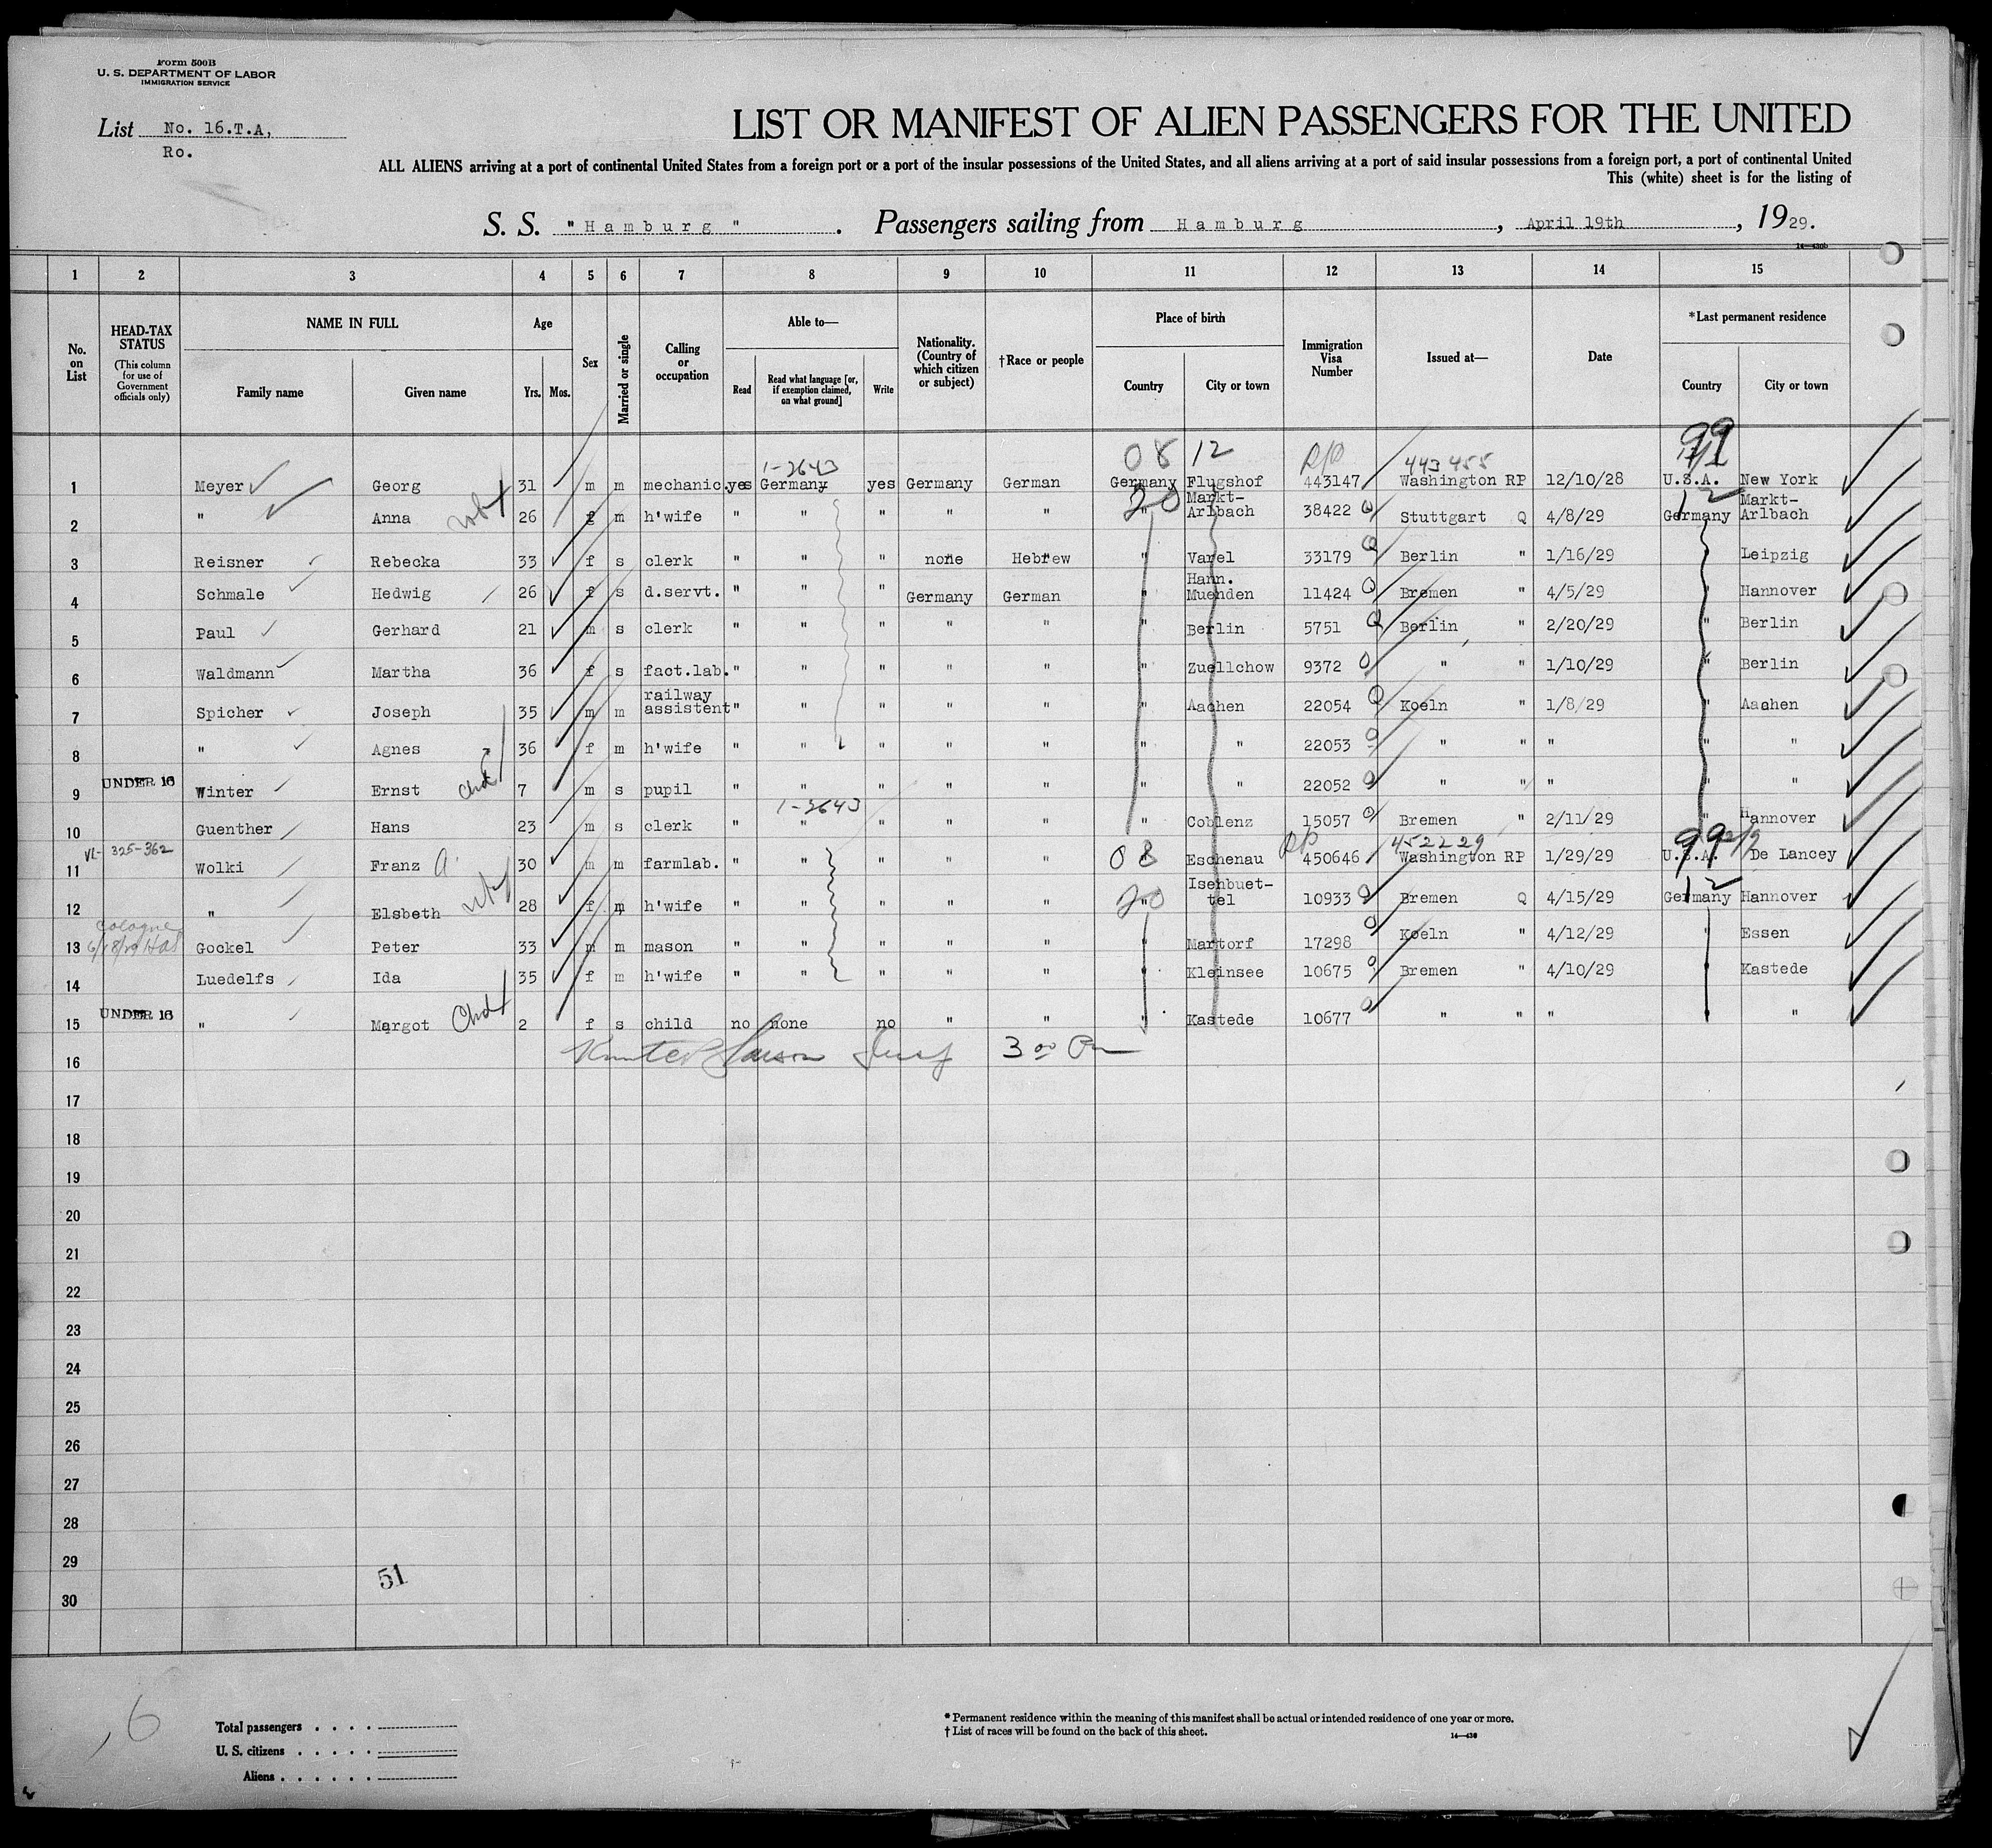 Form 500B
U. S. DEPARTMENT OF LABOR
IMMIGRATION SERVICE
List No. 16.T.A,
Ro.
LIST OR MANIFEST OF ALIEN PASSENGERS FOR THE UNITED
ALL ALIENS arriving at a port of continental United States from a foreign port or a port of the insular possessions of the United States, and all aliens arriving at a port of said insular possessions from a foreign port, a port of continental United
This (white) sheet is for the listing of
S. S. "Hamburg". Passengers sailing from Hamburg, April 19th, 1929.
1 2 3 4 5 6 7 8 9 10 11 12 13 14 15
No. on List
HEAD-TAX STATUS
(This column for use of Government officials only)
NAME IN FULL
Family name Given name
Age
Yrs. Mos.
Sex
Married or single
Calling or occupation
Able to—
Read
Read what language [or, if exemption claimed, on what ground]
Write
Nationality. (Country of which citizen or subject)
†Race or people
Place of birth
Country City or town
Immigration Visa Number
Issued at—
Date
*Last permanent residence
Country City or town
1-2643 08 12 R/P 443455 99
1 Meyer Georg 31 m m mechanic. yes Germany yes Germany German Germany Flugshof 443147 Washington RP 12/10/28 U.S.A. New York
20 12
2 " Anna 26 f m h'wife " " " " " " Markt-Arlbach 38422 Q Stuttgart Q 4/8/29 Germany Markt-Arlbach
3 Reisner Rebecka 33 f s clerk " " " none Hebrew " Varel 33179 Q Berlin " 1/16/29 " Leipzig
4 Schmale Hedwig 26 f s d.servt. " " " Germany German " Hann. Muenden 11424 Q Bremen " 4/5/29 " Hannover
5 Paul Gerhard 21 m s clerk " " " " " " Berlin 5751 Q Berlin " 2/20/29 " Berlin
6 Waldmann Martha 36 f s fact.lab. " " " " " " Zuellchow 9372 Q " " 1/10/29 " Berlin
7 Spicher Joseph 35 m m railway assistent " " " " " " Aachen 22054 Q Koeln " 1/8/29 " Aachen
8 " Agnes 36 f m h'wife " " " " " " " 22053 Q " " " " "
9 UNDER 16 Winter Ernst 7 m s pupil " " " " " " " 22052 Q " " " " "
1-2643
10 Guenther Hans 23 m s clerk " " " " " " Coblenz 15057 Q Bremen " 2/11/29 " Hannover
VL- 325-362 08 R/P 452229 99
11 Wolki Franz 30 m m farmlab. " " " " " Eschenau 450646 Washington RP 1/29/29 U.S.A. De Lancey
20 12
12 " Elsbeth 28 f m h'wife " " " " " " Isenbuet-tel 10933 Q Bremen Q 4/15/29 Germany Hannover
Cologne
13 6/18/29 Gockel Peter 33 m m mason " " " " " " Martorf 17298 Q Koeln " 4/12/29 " Essen
14 Luedelfs Ida 35 f m h'wife " " " " " " Kleinsee 10675 Q Bremen " 4/10/29 " Kastede
15 UNDER 16 " Margot Chd 2 f s child no none no " " " Kastede 10677 Q " " " " "
16 3 00
17
18
19
20
21
22
23
24
25
26
27
28
29
51
30
6
Total passengers
U. S. citizens
Aliens
* Permanent residence within the meaning of this manifest shall be actual or intended residence of one year or more.
† List of races will be found on the back of this sheet.
14—430